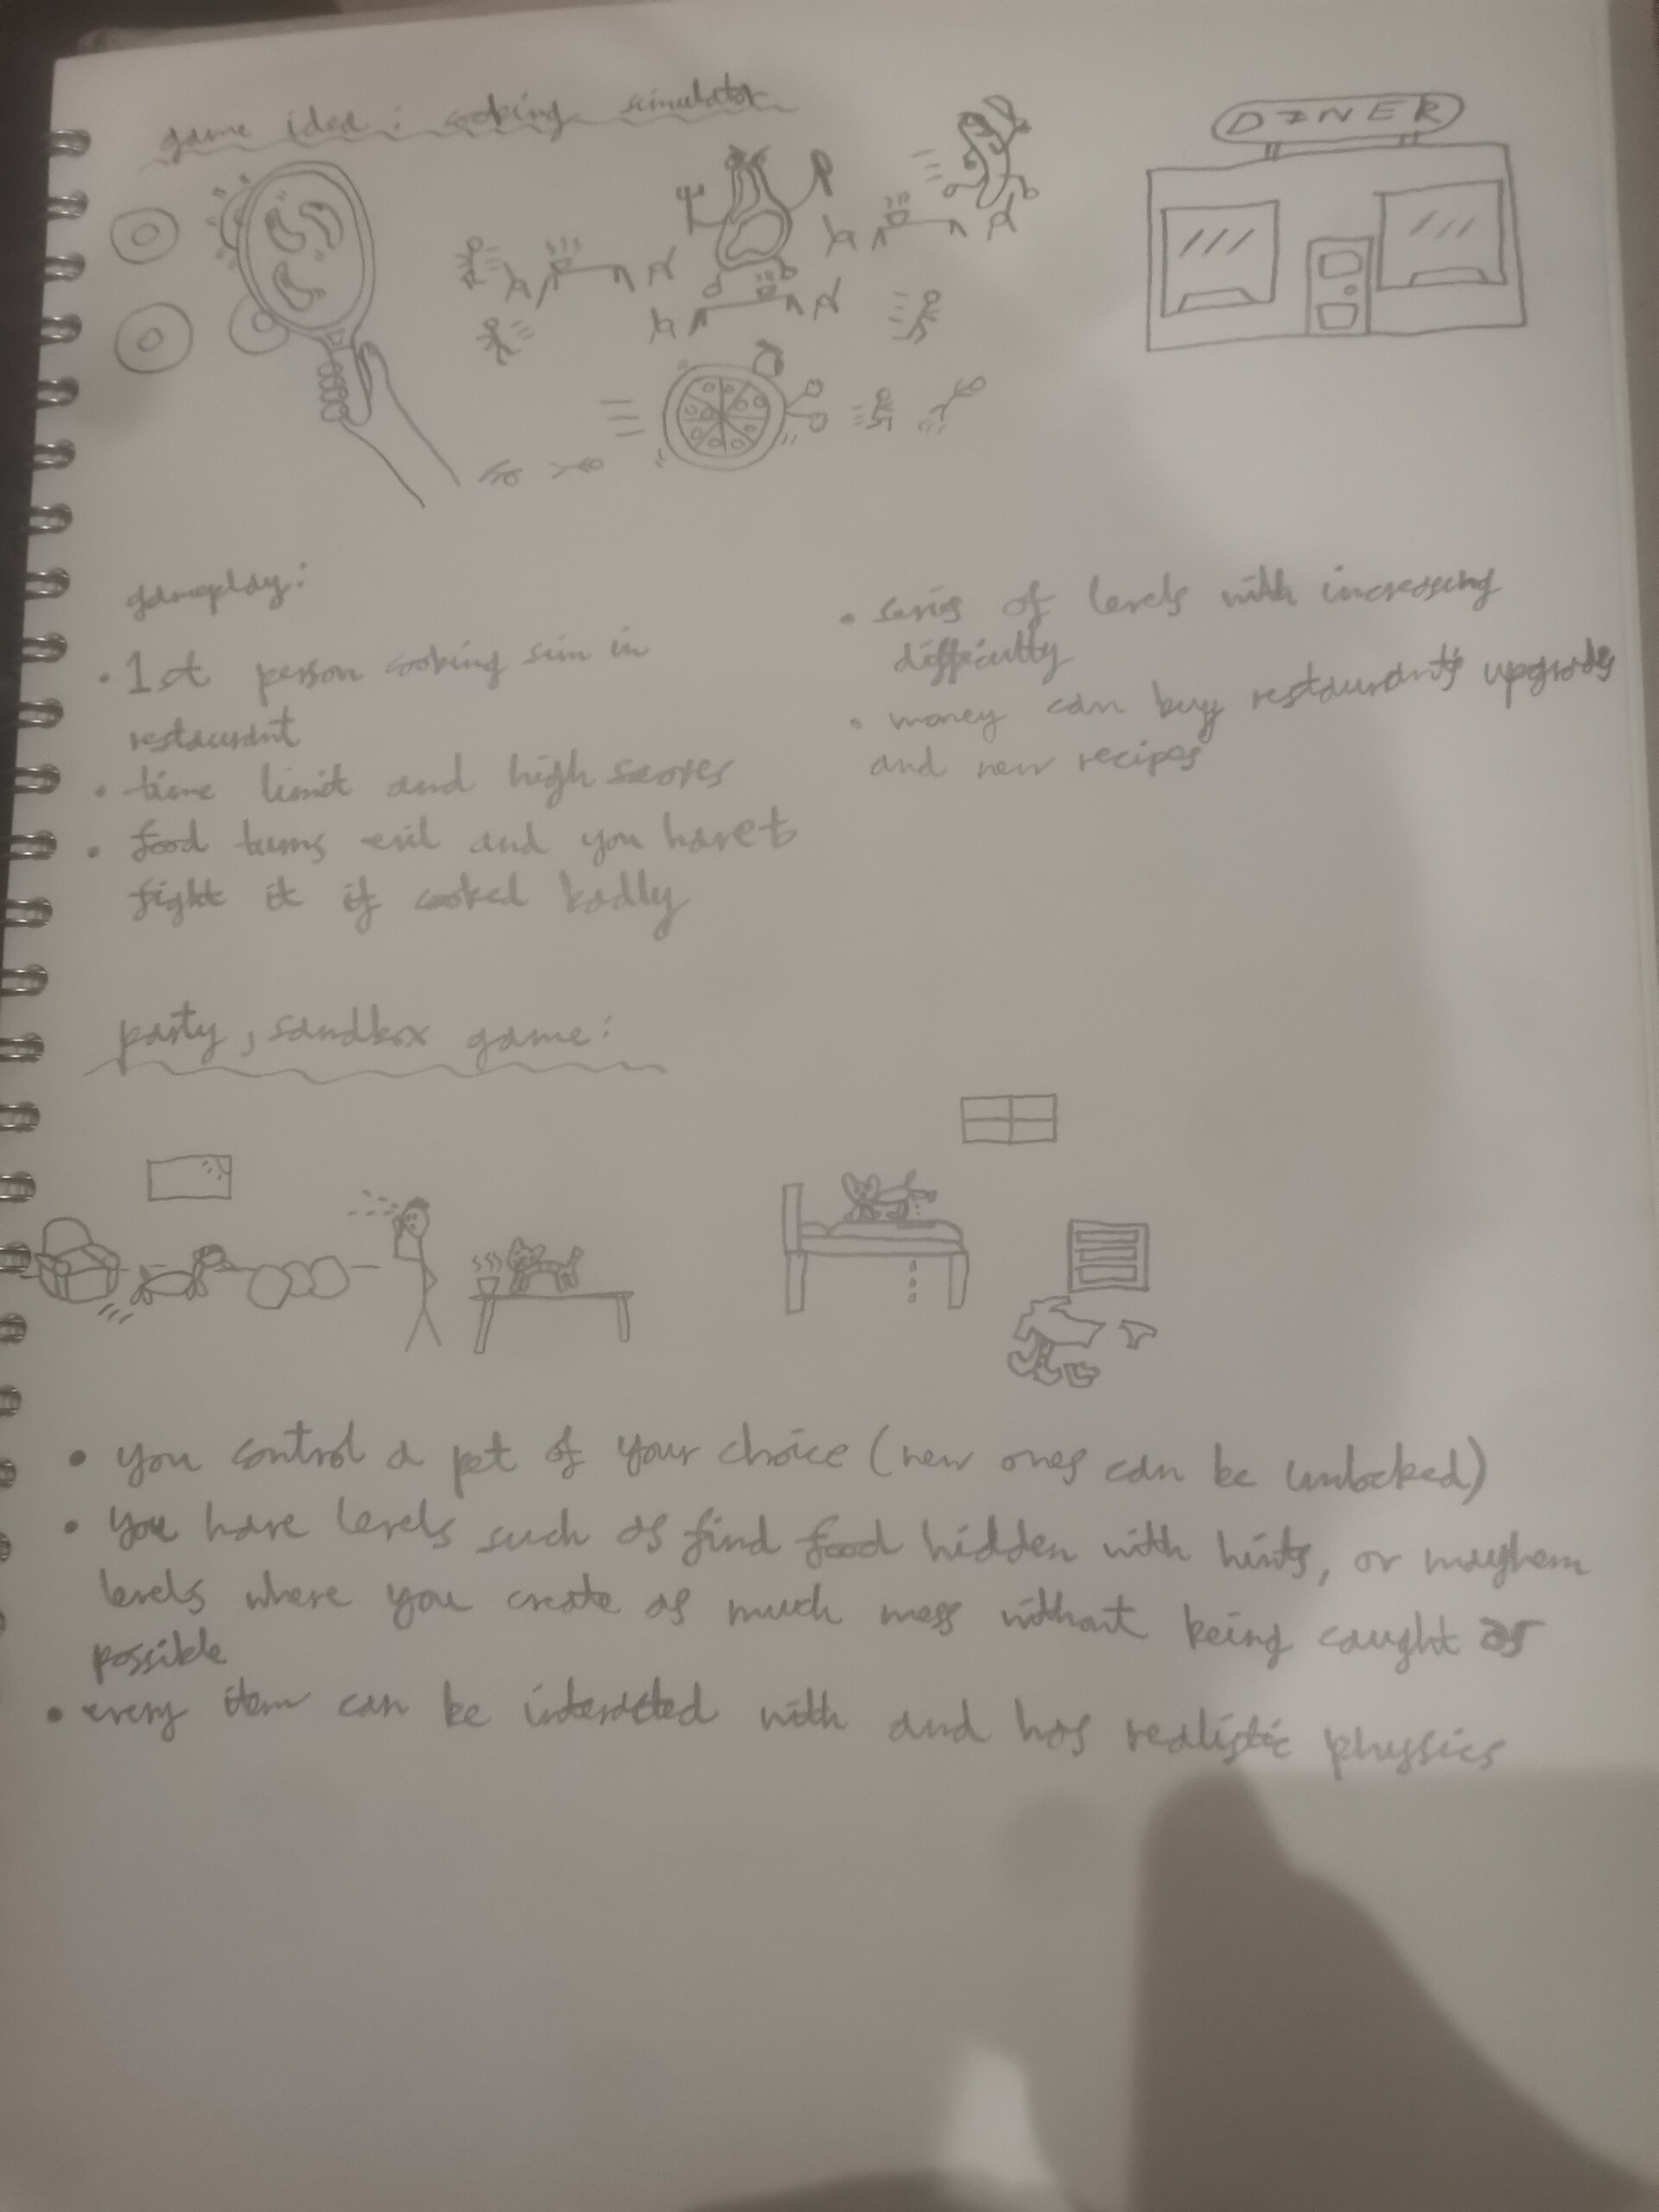 game idea: cooking simulator
DINER
gameplay:
• 1st person cooking sim in
restaurant
• time limit and high scores
• food turns evil and you have to
fight it if cooked badly
• series of levels with increasing
difficulty
• money can buy restaurants upgrades
and new recipes
party, sandbox game:
• you control a pet of your choice (new ones can be unlocked)
• you have levels such as find food hidden with hints, or mayhem
levels where you create as much mess without being caught as
possible
• every item can be interacted with and has realistic physics